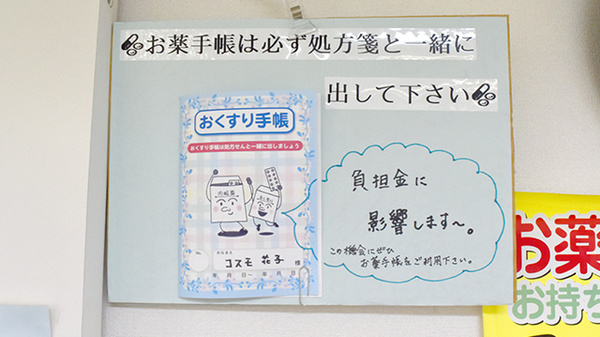 お薬手帳は必ず処方箋と一緒に
出して下さい
おくすり手帳
おくすり手帳は処方せんと一緒に出しましょう
内服薬
コスモ 花子 様
年 月 日〜 年 月 日
負担金に
影響します〜。
この機会にぜひ
お薬手帳をご利用下さい。
お薬
お持ち